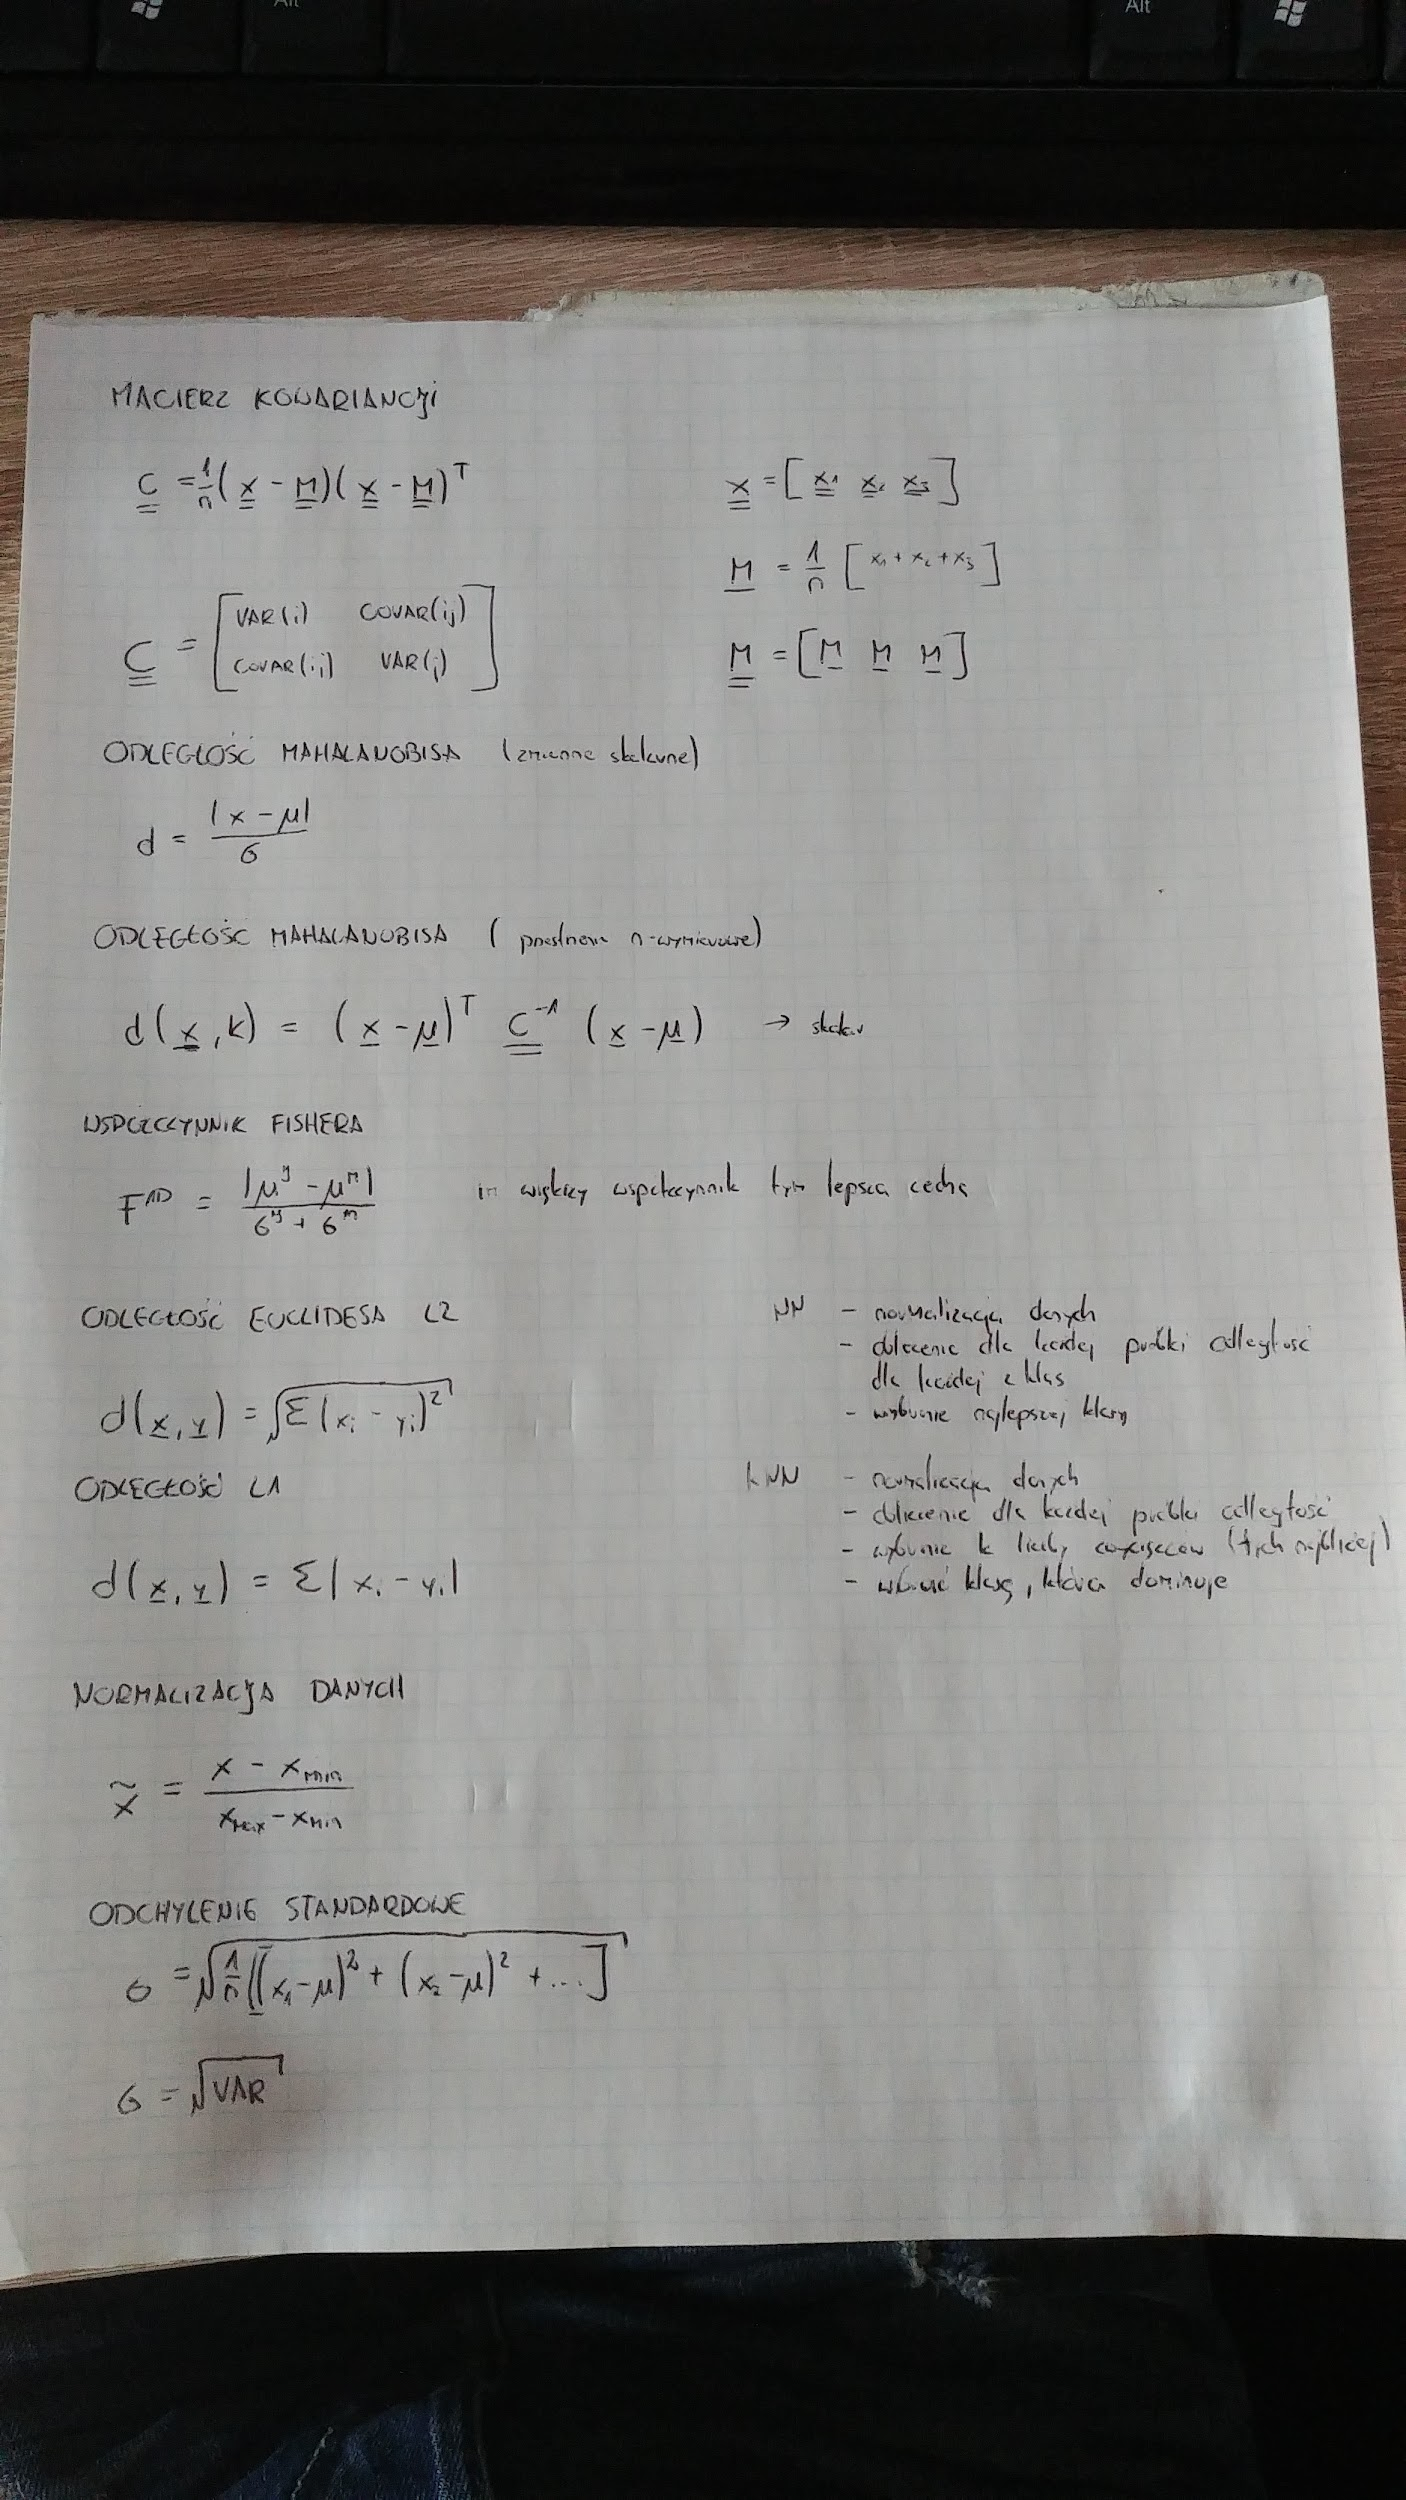 Alt
Alt
MACIERZ KOWARIANCJI
C = 1/n (x - M)(x - M)^T
x = [x1 x2 x3]
M = 1/n [x1 + x2 + x3]
C = [VAR(i) COVAR(ij)
COVAR(ij) VAR(j)]
M = [M M M]
ODLEGŁOŚĆ MAHALANOBISA (zmienne skalarne)
d = |x - μ| / σ
ODLEGŁOŚĆ MAHALANOBISA (przestrzenie n-wymiarowe)
d(x, k) = (x - μ)^T C^-1 (x - μ) → skalar
WSPÓŁCZYNNIK FISHERA
F^1D = |μ^y - μ^m| / σ^y + σ^m
im większy współczynnik tym lepsza cecha
ODLEGŁOŚĆ EUCLIDESA L2
d(x, y) = √Σ(xi - yi)^2
NN - normalizacja danych
- obliczenie dla każdej próbki odległość
dla każdej z klas
- wybranie najlepszej klasy
ODLEGŁOŚĆ L1
d(x, y) = Σ|xi - yi|
kNN - normalizacja danych
- obliczenie dla każdej próbki odległość
- wybranie k liczby (tych najbliżej)
- wybrać klasę, która dominuje
NORMALIZACJA DANYCH
x̃ = x - xmin / xmax - xmin
ODCHYLENIE STANDARDOWE
σ = √1/n [(x1 - μ)^2 + (x2 - μ)^2 + ...]
σ = √VAR